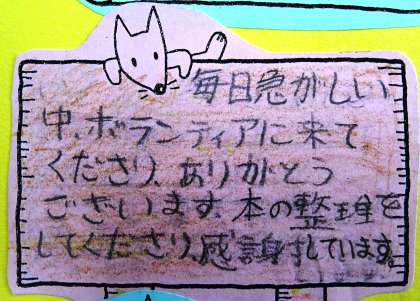 毎日急がしい
中、ボランティアに来て
くださり、ありがとう
ございます。本の整理を
してくださり、感謝しています。